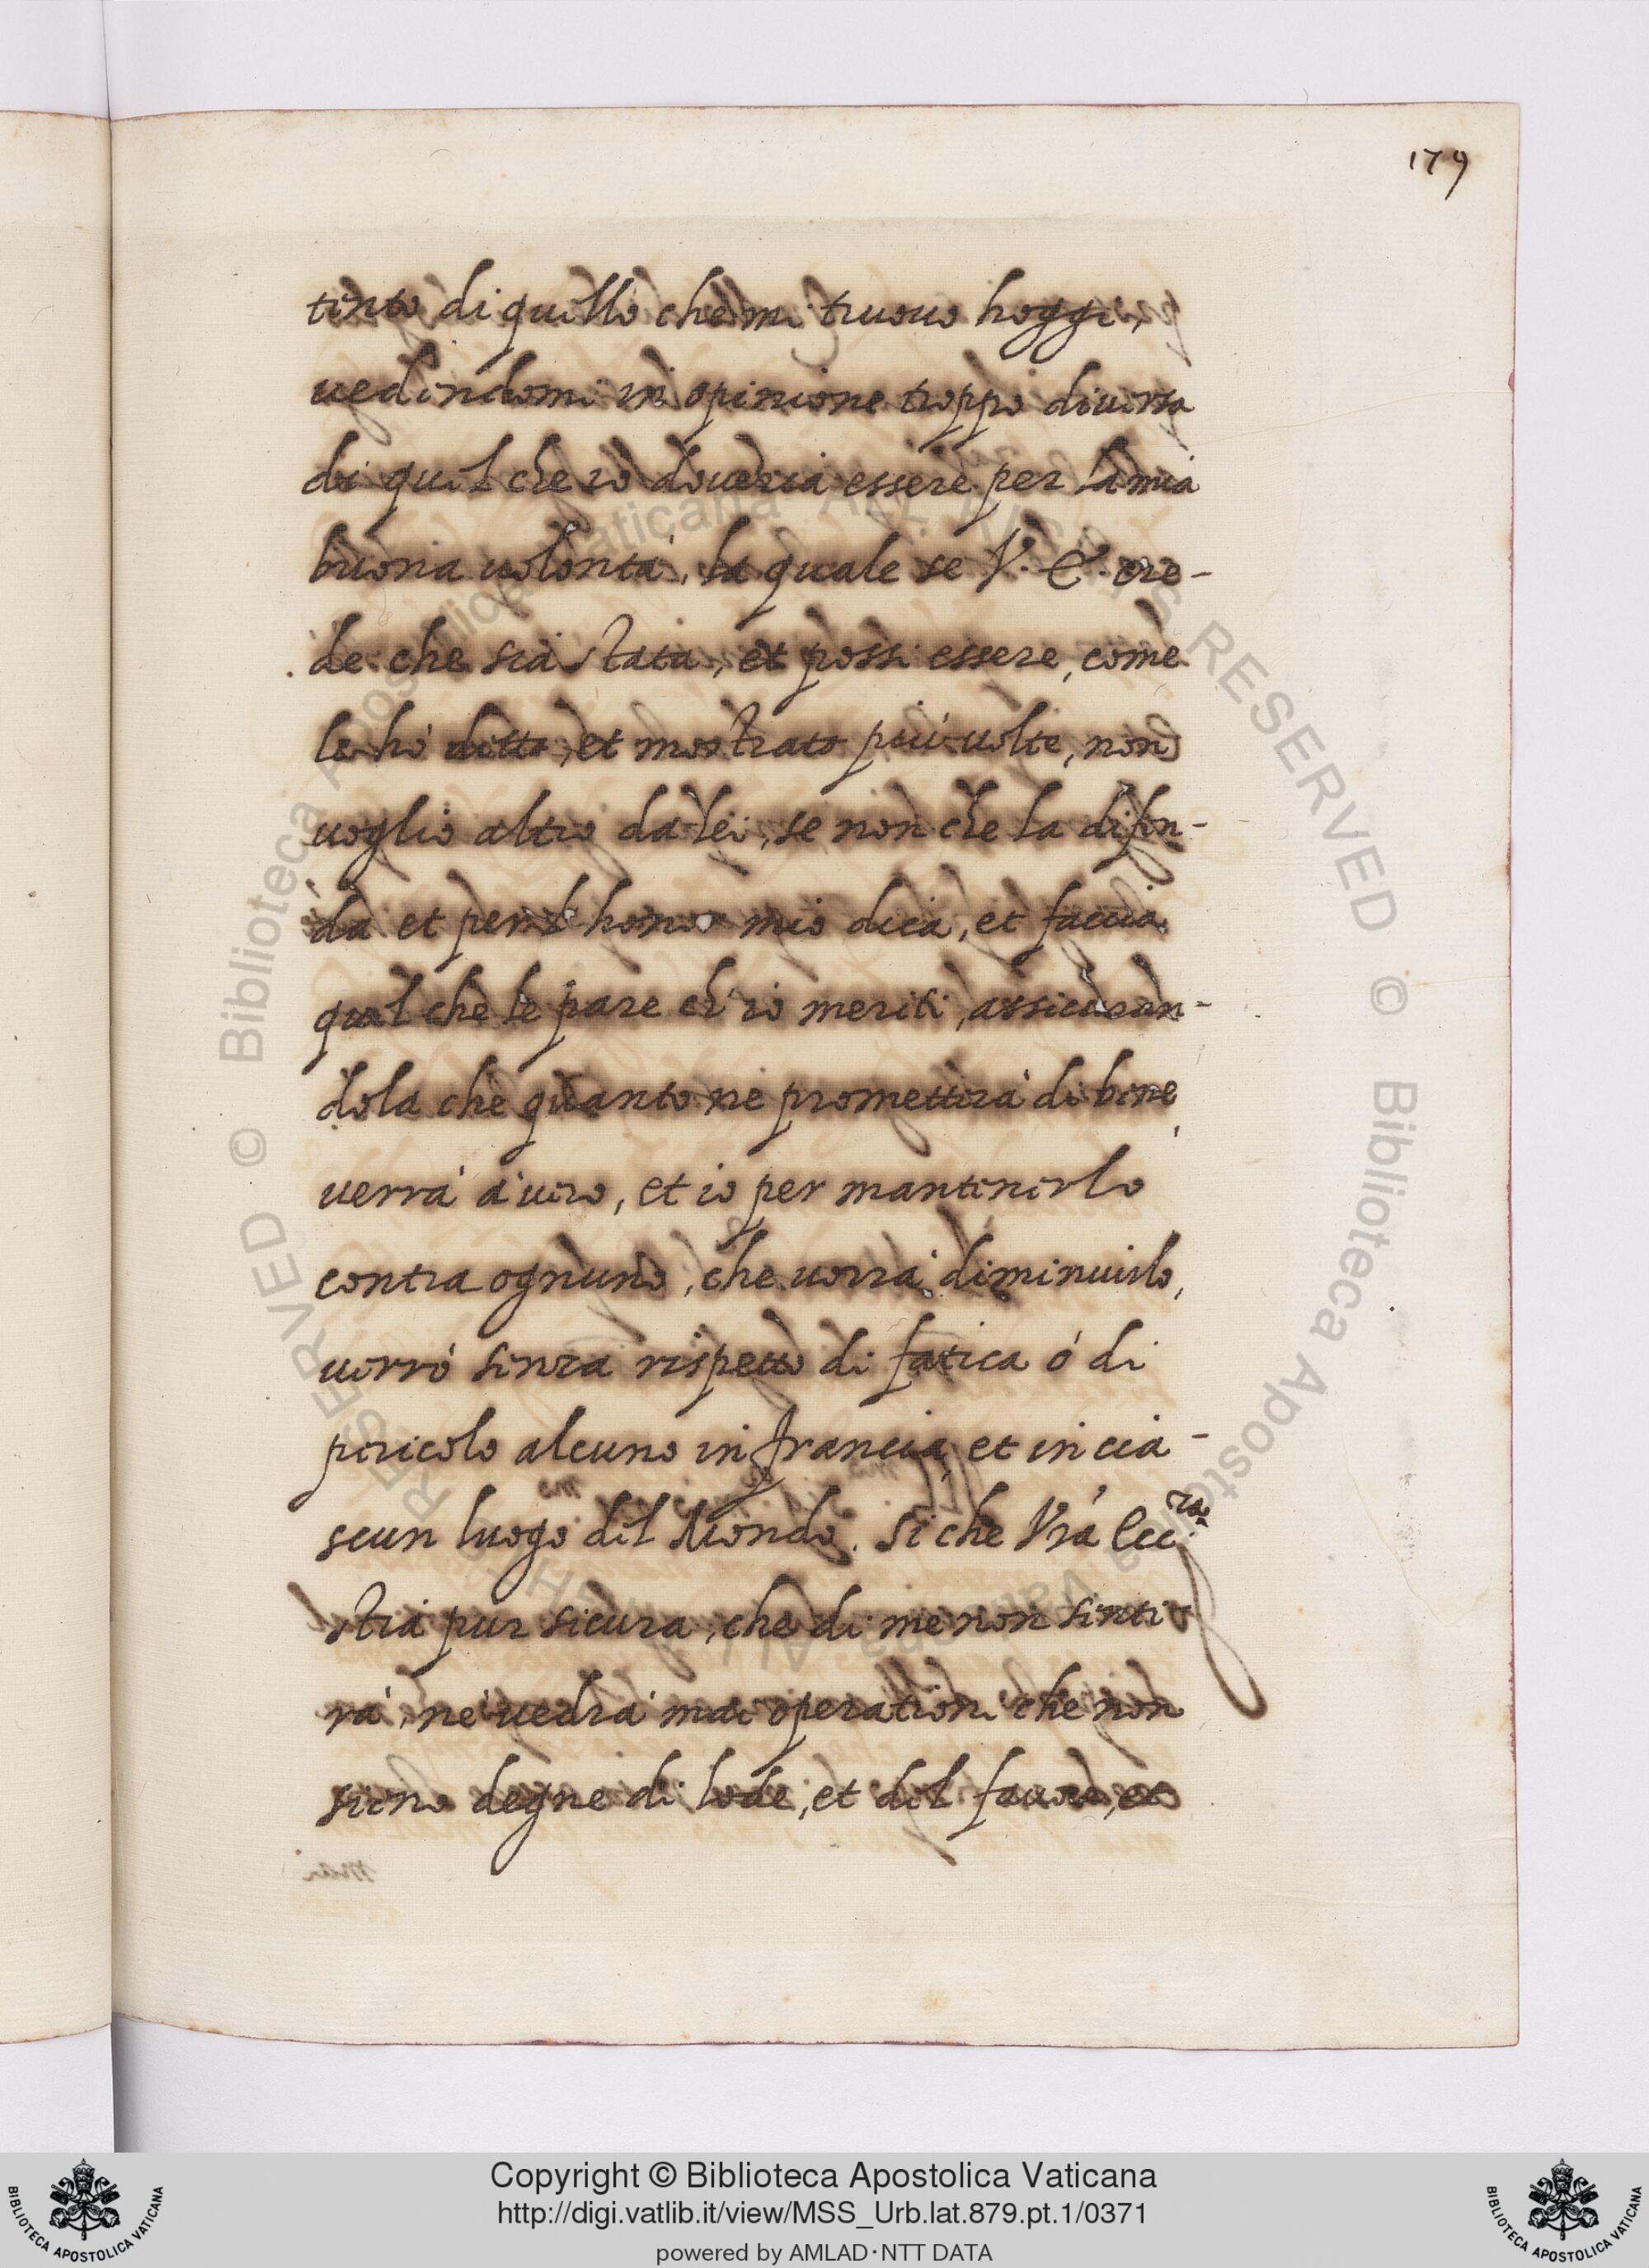 179
tento di quello che mi truouo hoggi,
uedendomi in opinione troppo diuersa
di quel che io doueria essere per la mia
buona uolontà, la quale se V. E. cre-
de che sia stata, et possi essere, come
le hò detto, et mostrato più uolte, non
uoglio altro da lei, se non che la difen-
da et per l'honor mio dica, et faccia
quel che le pare ch'io meriti, assicuran-
dola che quanto ne prometterà di bene
uerrà à uero, et io per mantenerlo
contra ognuno, che uorrà diminuirlo,
uerrò senza rispetto di fatica ò di
pericolo alcuno in francia, et in cia-
scun luogo del Mondo. Si che Vrá Ecc.za
stia pur sicura, che di me non senti
rà, ne uedrà mai operationi che non
sieno degne di lode, et del fauore, et
Copyright © Biblioteca Apostolica Vaticana
http://digi.vatlib.it/view/MSS_Urb.lat.879.pt.1/0371
powered by AMLAD·NTT DATA
BIBLIOTECA APOSTOLICA VATICANA
BIBLIOTECA APOSTOLICA VATICANA